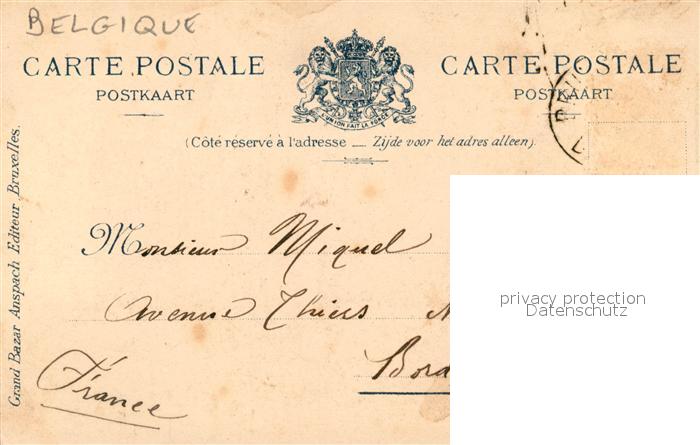 BELGIQUE
CARTE POSTALE
POSTKAART
L'UNION FAIT LA FORCE
CARTE POSTALE
POSTKAART
(Côté réservé à l'adresse — Zijde voor het adres alleen)
Grand Bazar Anspach Editeur Bruxelles.
Monsieur Miquel
Avenue Thiers N
Bord
France
privacy protection
Datenschutz